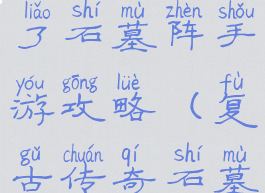 liǎo shí mù zhèn shǒu
了石墓阵手
yóu gōng lüè fù
游攻略（复
gǔ chuán qí shí mù
古传奇石墓